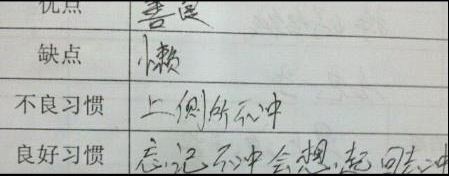 优点 善良
缺点 懒
不良习惯 上侧所不冲
良好习惯 忘记不冲会想起回去冲